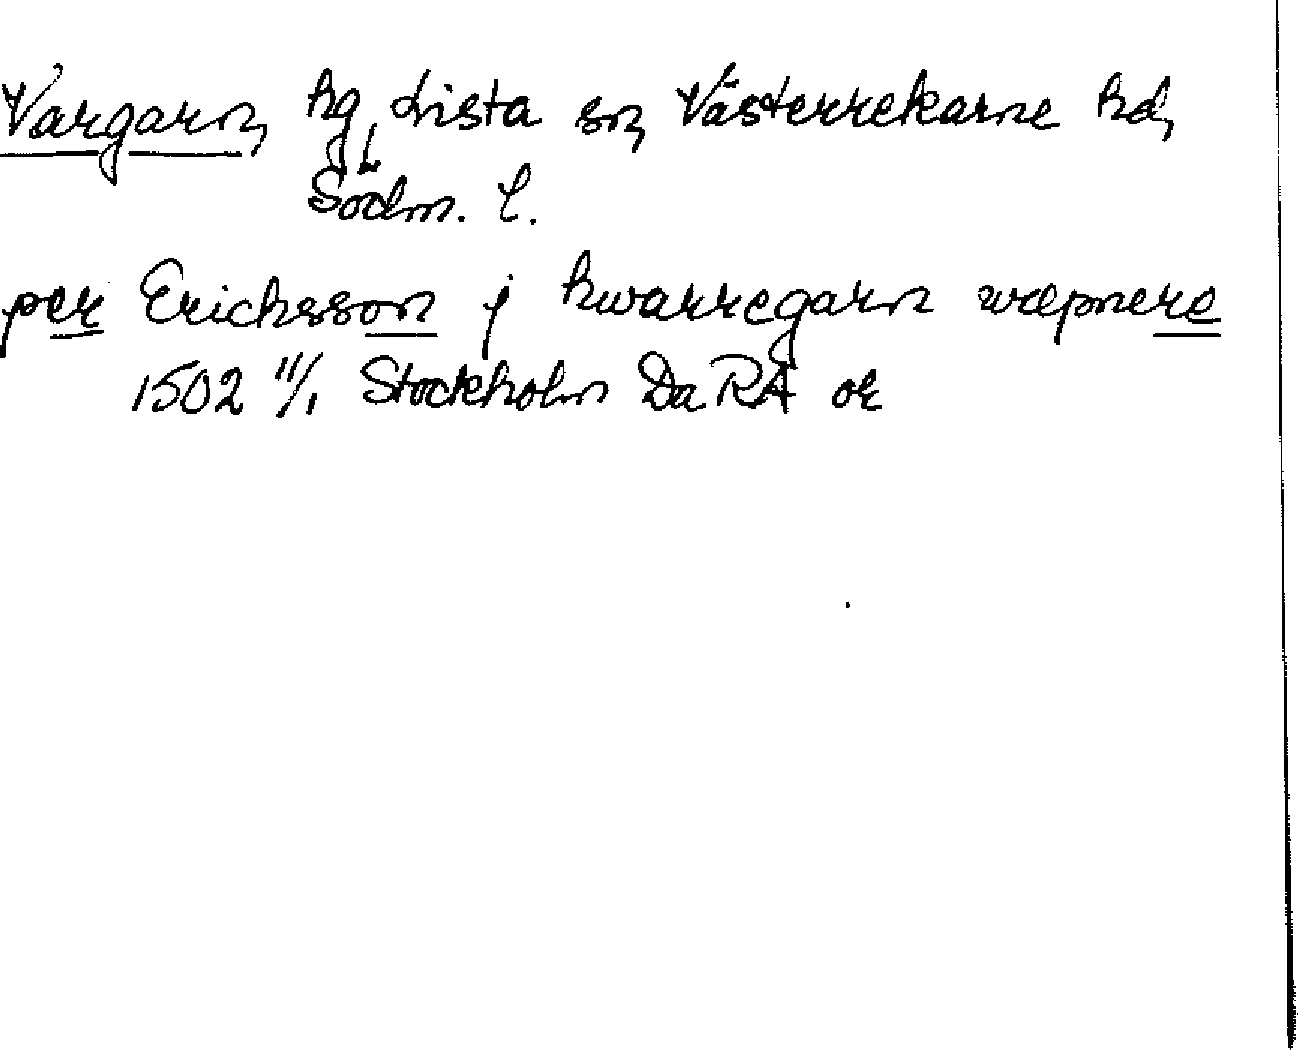 Vargarn, hg, Lista sn, Västerrekarne hd,
Södm. l.
per Ericksson j hwarregarn wæpnere
1502 11/1 Stockholm DaRA or